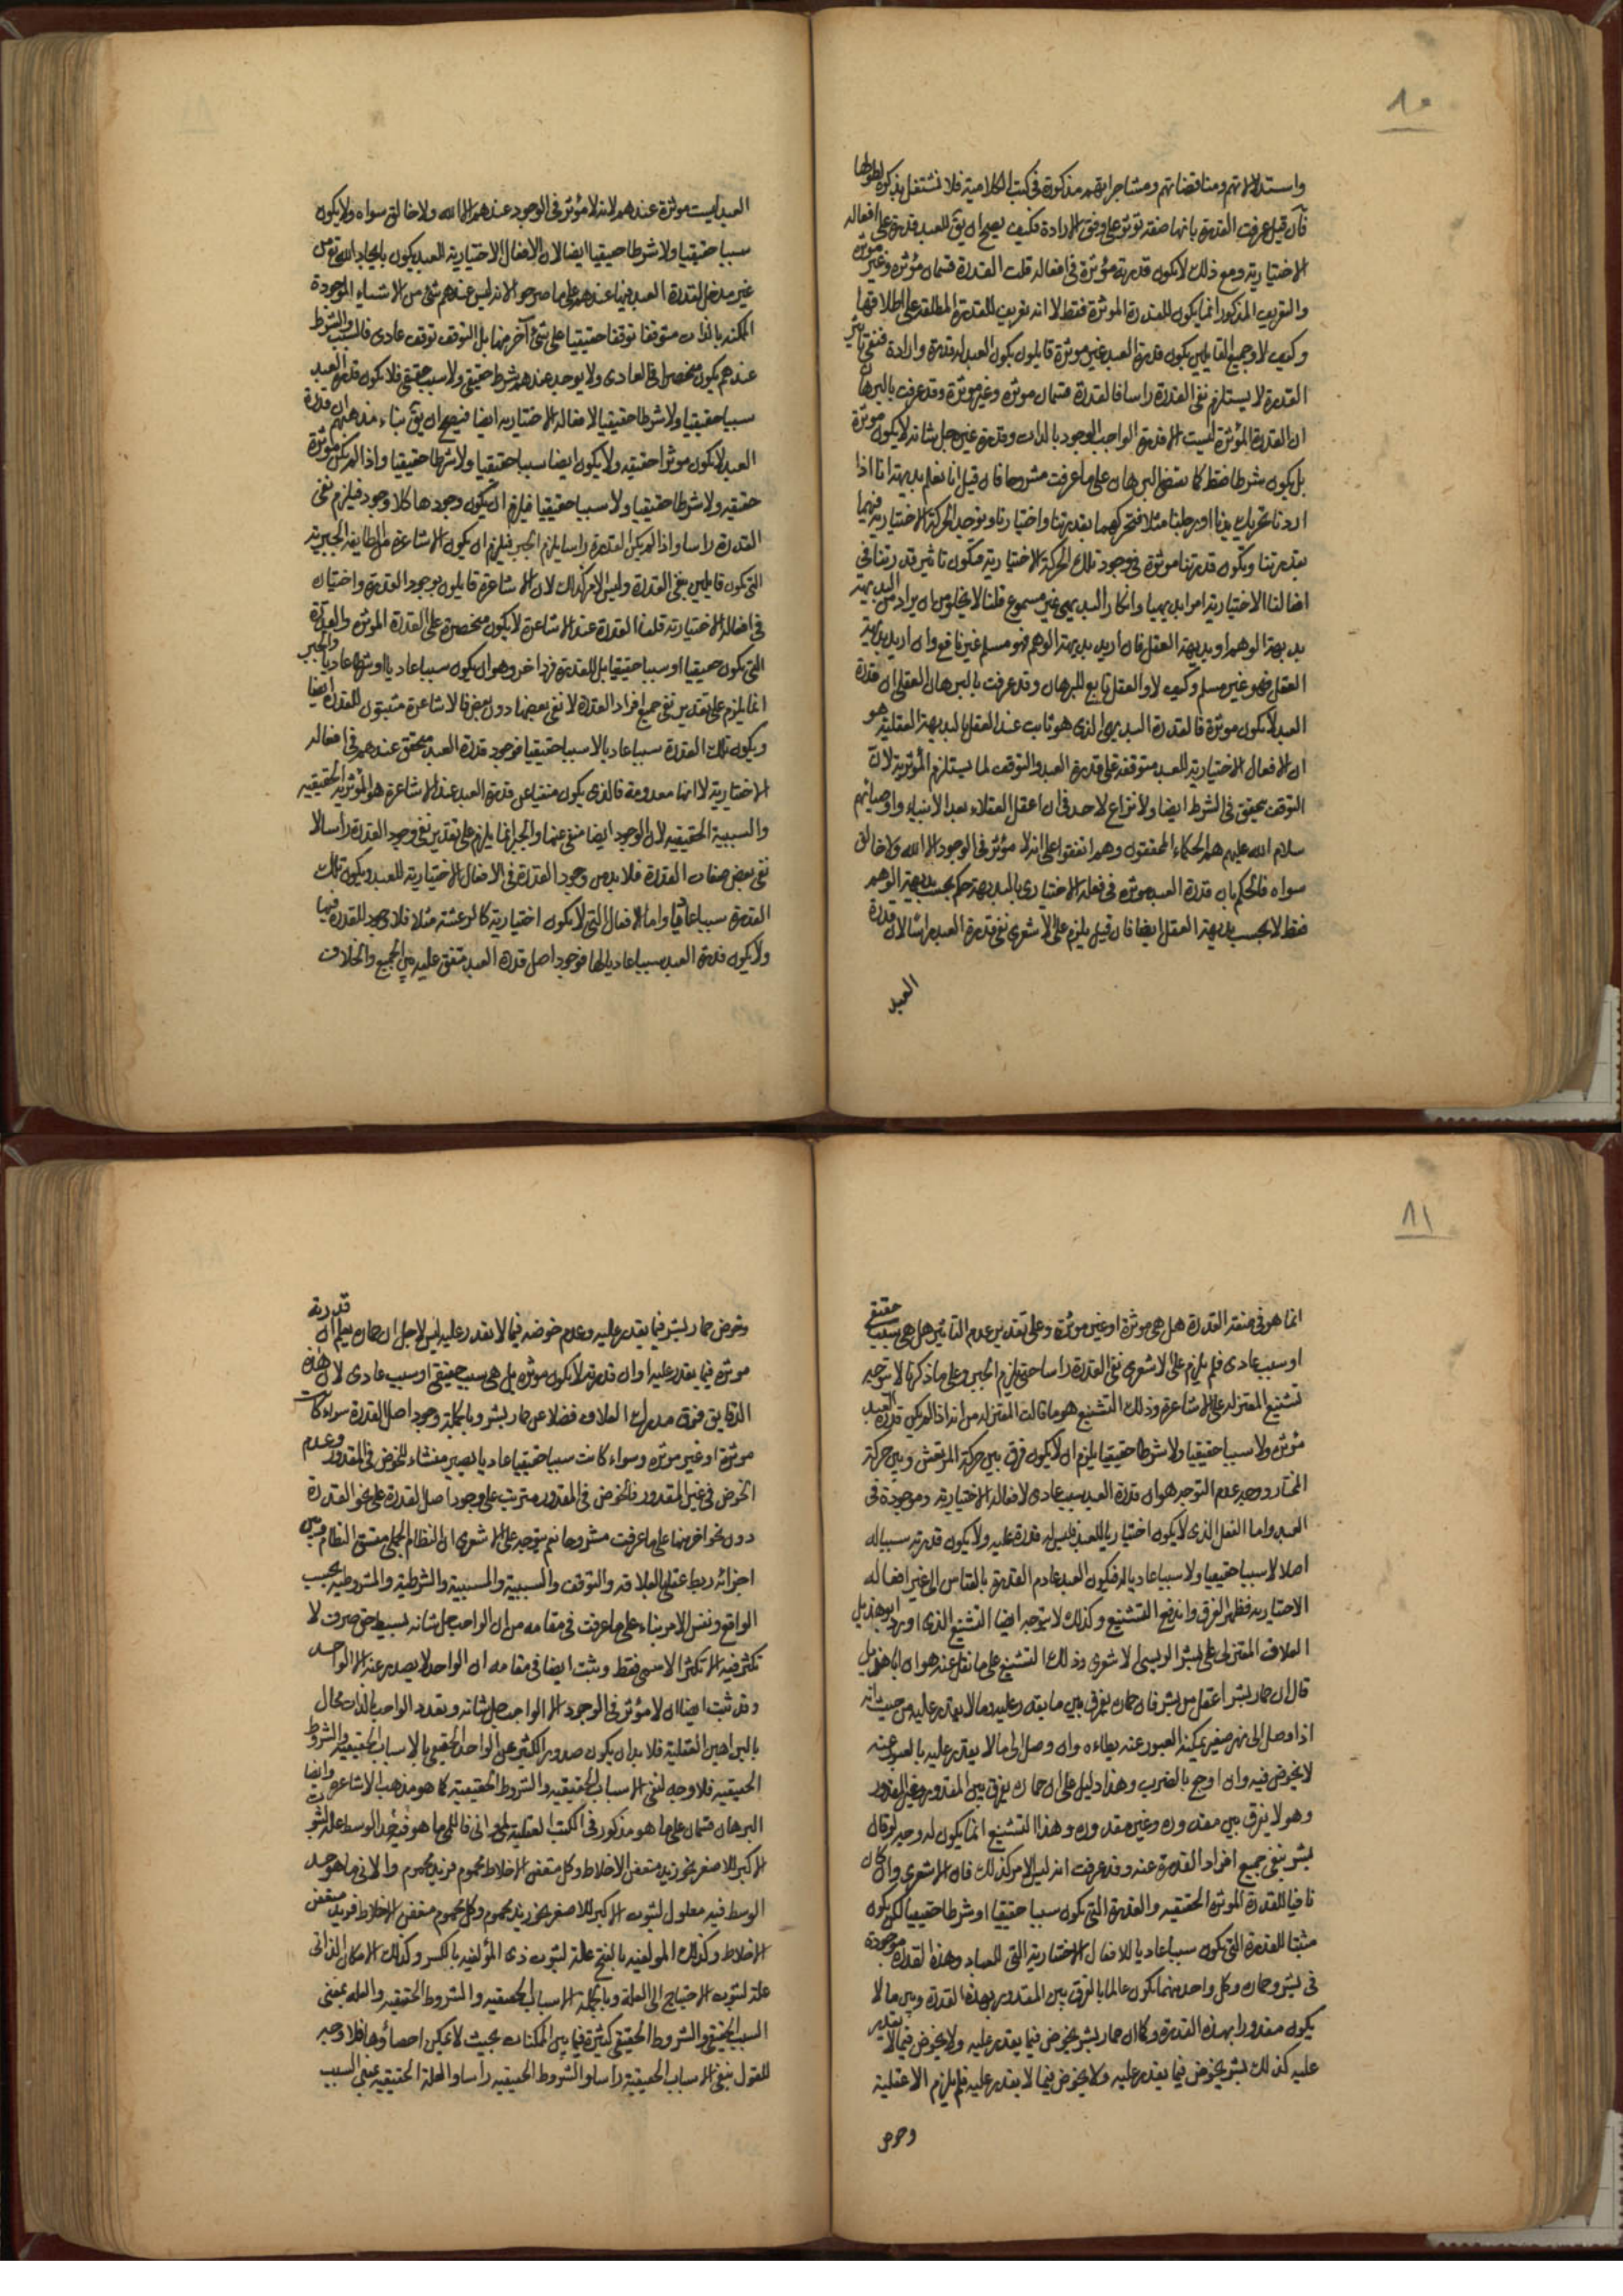 ٨٠
واستدلالاتهم ومناقضاتهم ومشاجراتهم مذكورة فى كتب الكلامية فلا نشتغل بذكره لطولها
فان قيل عرفت القدرة بانها صفة تؤثر على وفق الارادة فكيف يصح ان يق للعبد قدرة على افعاله
الاختيارية ومع ذلك لا يكون قدرته مؤثرة فى افعاله قلت القدرة قسمان مؤثرة وغير مؤثرة
والتعريف المذكور انما يكون للقدرة الموثرة فقط لا انه تعريف للقدرة المطلقة على اطلاقها
وكيف لا وجميع القايلين بكون قدرة العبد غير موثرة قايلون بكون العبد له قدرة وارادة فنفى تاثير
القدرة لا يستلزم نفى القدرة راسا فالقدرة قسمان موثره وغير موثرة وقد عرفت بالبرهان
ان القدرة المؤثرة ليست الا قدرة الواجب الوجود بالذات وقدرة غيره جل شانه لا يكون موثرة
بل يكون شرطا فقط كما يقتضى البرهان على ما عرفت مشروحا فان قيل انا نعلم بديهة انا اذا
اردنا تحريك يدنا او رجلنا مثلا فتحركهما بقدرتنا واختيارنا ويوجد الحركة الاختيارية فيهما
بقدرتنا ويكون قدرتنا موثرة فى وجود تلك الحركة الاختيارية فيكون تاثير قدرتنا فى
افعالنا الاختيارية امرا بديهيا وانكار البديهى غير مسموع قلنا لا يخلو من ان يراد من البديهة
بديهة الوهم او بديهة العقل فان اريد بديهة الوهم فهو مسلم غير نافع وان اريد بديهة
العقل فهو غير مسلم وكيف لا والعقل تابع للبرهان وقد عرفت بالبرهان العقلى ان قدرة
العبد لا يكون موثرة فالقدرة البديهى الذى هو ثابت عند العقل بالبديهة العقلية هو
ان الافعال الاختيارية للعبد متوقفة على قدرة العبد والتوقف لما يستلزم المؤثرية لان
التوقف يحقق فى الشرط ايضا ولا نزاع لاحد فى ان اعقل العقلاء بعد الانبياء واوصيائهم
سلام الله عليهم هم الحكماء المحققون وهم اتفقوا على انه لا مؤثر فى الوجود الا الله ولا خالق
سواه فالحكم بان قدرة العبد موثرة فى فعله الاختيارى بالبديهة حكم بحسب بديهة الوهم
فقط لا بحسب بديهة العقل ايضا فان قيل يلزم على الاشعرى نفى قدرة العبد راسا لان قدرة
العبد
العبد ليست موثرة عندهم لانه لا مؤثر فى الوجود عندهم الا الله ولا خالق سواه ولا يكون
سببا حقيقيا ولا شرطا حقيقيا ايضا لان الافعال الاختيارية للعبد يكون بايجاد الله تع من
غير مدخل لقدرة العبد فيها عندهم على ما صرحوا لانه ليس عندهم شئ من الاشياء الموجودة
الممكنة بالذات متوقفا توقفا حقيقيا على شئ آخر منها بل التوقف توقف عادى فالسبب والشرط
عندهم يكون منحصرا فى العادى ولا يوجد عندهم شرط حقيقى ولا سبب حقيقى فلا يكون قدرة العبد
سببا حقيقيا ولا شرطا حقيقيا لافعاله الاختيارية ايضا فيصح ان يق بناء مذهبهم ان قدرة
العبد لا يكون موثرا حقيقه ولا يكون ايضا سببا حقيقيا ولا شرطا حقيقيا واذا لم يكن موثرة
حقيقه ولا شرطا حقيقيا ولا سببا حقيقيا فيلزم ان يكون وجودها كلا وجود فيلزم نفى
القدرة راسا واذا لم يكن القدرة راسا يلزم الجبر فيلزم ان يكون الاشاعرة من الطايفة الجبرية
التى يكون قايلين بنفى القدرة وليس الامر كذلك لان الاشاعرة قايلون بوجود القدرة واختياره
فى افعاله الاختيارية قلنا القدرة عند الاشاعرة لا يكون منحصرة على القدرة الموثرة والقدرة
التى يكون حقيقيا او سببا حقيقيا بل للقدرة فرد اخر وهو ان يكون سببا عاديا او شرطا عاديا والجبر
انما يلزم على تقدير نفى جميع افراد القدرة لا نفى بعضها دون بعض فالاشاعرة مثبتون للقدرة ايضا
ويكون تلك القدرة سببا عاديا لا سببا حقيقيا فوجود قدرة العبد محقق عندهم فى افعاله
الاختيارية لا انها معدومة فالذى يكون منفيا عن قدرة العبد عند الاشاعرة هو المؤثرية الحقيقيه
والسببية الحقيقيه لان الوجود ايضا منفى عنها والجبر انما يلزم على تقدير نفى وجود القدرة راسا لا
نفى بعض صفات القدرة فلا بد من وجود القدرة فى الافعال الاختيارية للعبد ويكون تلك
القدرة سببا عاديا واما الافعال التى لا يكون اختيارية كالرعشة مثلا فلا وجود للقدرة فيها
ولا يكون قدرة العبد سببا عاديا لها فوجود اصل قدرة العبد متفق عليه بين الجميع والخلاف
٨١
انما هو فى صفة القدرة هل هى موثرة او غير موثرة وعلى تقدير عدم التاثير هل هى سبب حقيقى
او سبب عادى فلم يلزم على الاشعرى نفى القدرة راسا حتى يلزم الجبر وعلى ما ذكرنا لا يتوجه
تشنيع المعتزله على الاشاعرة وذلك التشنيع هو ما قالت المعتزله من انه اذا لم يكن قدرة العبد
مؤثره ولا سببا حقيقيا ولا شرطا حقيقيا يلزم ان لا يكون فرق بين حركة المرتعش وبين حركة
المختار ووجه عدم التوجه هو ان قدرة العبد سبب عادى لافعاله الاختيارية وموجودة فى
العبد واما الفعل الذى لا يكون اختياريا للعبد فليس له قدرة عليه ولا يكون قدرته سببا له
اصلا لا سببا حقيقيا ولا سببا عاديا له فيكون العبد عادم القدرة بالقياس الى غير افعاله
الاختياريه فظهر الفرق واندفع التشنيع وكذلك لا يتوجه ايضا التشنيع الذى اورد ابو هذيل
العلاف المعتزلى على بشر المريسى الاشعرى وذلك التشنيع على ما نقل عنه هو ان ابا هذيل
قال ان حمار بشر اعقل من بشر فان حماره يفرق بين ما يقدر عليه وما لا يقدر عليه من حيث انه
اذا وصل الى نهر صغير يمكنه العبور عنه يطاءه وان وصل الى ما لا يقدر عليه بالعبور عنه
لا يخوض فيه وان اوجع بالضرب وهذا دليل على ان حماره يفرق بين المقدور وغير المقدور
وهو لا يفرق بين مقدوره وغير مقدوره وهذا التشنيع انما يكون له وجه لو قال
بشر بنفى جميع افراد القدرة عنه وقد عرفت انه ليس الامر كذلك فان الاشعرى وان كان
نافيا للقدرة الموثرة الحقيقيه والقدرة التى يكون سببا حقيقيا او شرطا حقيقيا لكن يكون
مثبتا للقدرة التى يكون سببا عاديا للافعال الاختيارية التى للعباد وهذه القدرة موجودة
فى بشر وحماره وكل واحد منهما يكون عالما بالفرق بين المقدور بهذه القدرة وبين ما لا
يكون مقدورا بهذه القدرة وكما ان حمار بشر يخوض فيما يقدر عليه ولا يخوض فيما لا يقدر
عليه كذلك بشر يخوض فيما يقدر عليه ولا يخوض فيما لا يقدر عليه فلم يلزم الاعقلية
وخوض
وخوض حمار بشر فيما يقدر عليه وعدم خوضه فيما لا يقدر عليه ليس لاجل ان حماره يعلم ان قدرته
موثرة فيما يقدر عليه او ان قدرته لا يكون موثره بل هى سبب حقيقى او سبب عادى لان هذه
الدقايق فوق مدرك العلاف فضلا عن حمار بشر وبالجملة وجود اصل القدرة سواء كانت
موثرة او غير موثره وسواء كانت سببا حقيقيا عاديا يصير منشاء للخوض فى المقدور وعدم
الخوض فى غير المقدور فالخوض فى المقدور مترتب على وجود اصل القدرة على نحو القدرة
دون نحو اخر منها على ما عرفت مشروحا نعم يتوجه على الاشعرى ان النظام الجملى متسق النظام وبين
اجزائه ربط عقلى بالعلاقة والتوقف والسببية والمسببية والشرطية والمشروطية بحسب
الواقع ونفس الامر بناء على ما عرفت فى مقامه من ان الواجب جل شانه بسيط حق صرف لا
تكثر فيه الا تكثر الاسمى فقط ويثبت ايضا فى مقامه ان الواحد لا يصدر عنه الا الواحد
وقد ثبت ايضا ان لا مؤثر فى الوجود الا الواجب جل شانه وتعدد الواجب بالذات محال
بالبراهين العقلية فلا بد ان يكون صدور الكثير عن الواحد الحقيقى بالاسباب الحقيقيه والشروط
الحقيقيه فلا وجه لنفى الاسباب الحقيقيه والشروط الحقيقية كما هو مذهب الاشاعرة وايضا
البرهان قسمان على ما هو مذكور فى الكتب العقلية لمى وانى فاللمى ما هو فيه الحد الوسط علة لثبوت
الاكبر للاصغر نحو زيد متعفن الاخلاط وكل متعفن الاخلاط محموم فزيد محموم والانى ما هو حد
الوسط فيه معلول لثبوت الاكبر للاصغر نحو زيد محموم وكل محموم متعفن الاخلاط فزيد متعفن
الاخلاط وكذلك المؤلفيه بالفتح علة لثبوت ذى المؤلفيه بالكسر وكذلك الامكان الذاتى
علة لثبوت الاحتياج الى العلة وبالجملة الاسباب الحقيقيه والشروط الحقيقيه والعله بمعنى
السبب الحقيقى والشروط الحقيقى كثيرة فيما بين الممكنات بحيث لا يمكن احصاؤها فلا وجه
للقول بنفى الاسباب الحقيقية راسا والشروط الحقيقيه راسا والعلة الحقيقيه بمعنى السبب